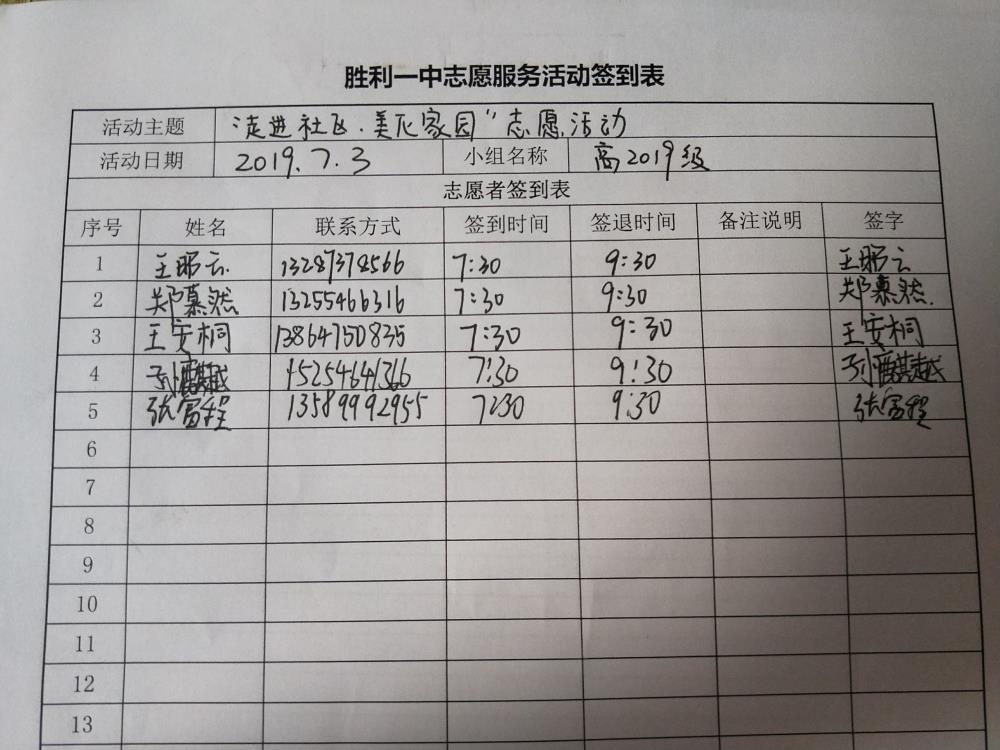 胜利一中志愿服务活动签到表
活动主题 "走进社区·美化家园"志愿活动
活动日期 2019.7.3 小组名称 高2019级
志愿者签到表
序号 姓名 联系方式 签到时间 签退时间 备注说明 签字
1 王昭云 13287378566 7:30 9:30 王昭云
2 郑慕然 13255466316 7:30 9:30 郑慕然
3 王安桐 13864750835 7:30 9:30 王安桐
4 孙麒越 15254641366 7:30 9:30 孙麒越
5 张富程 13589992955 7:30 9:30 张富程
6
7
8
9
10
11
12
13